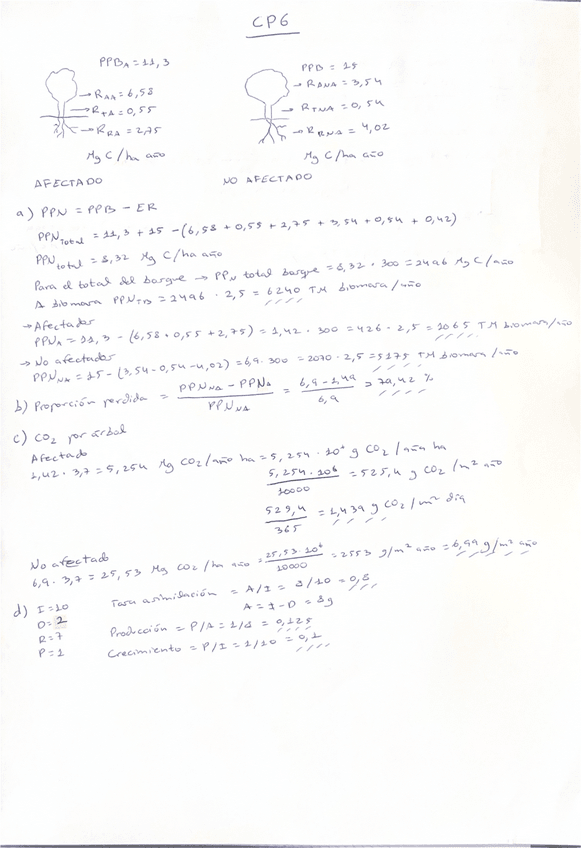 CP6
PPB_A = 11,3
R_AA = 6,58
R_TA = 0,55
R_RA = 2,75
Mg C/ha año
AFECTADO
PPB = 15
R_ANA = 3,54
R_TNA = 0,54
R_RNA = 4,02
Mg C/ha año
NO AFECTADO
a) PPN = PPB - ER
PPN_Total = 11,3 + 15 - (6,58 + 0,55 + 2,75 + 3,54 + 0,54 + 0,42)
PPN_total = 8,32 Mg C/ha año
Para el total del bosque → PP_N total bosque = 8,32 · 300 = 2496 Mg C/año
A biomasa PPN_TB = 2496 · 2,5 = 6240 TM biomasa/año
→ Afectados
PPN_A = 11,3 - (6,58 + 0,55 + 2,75) = 1,42 · 300 = 426 · 2,5 = 1065 TM biomasa/año
→ No afectados
PPN_NA = 15 - (3,54 - 0,54 - 4,02) = 6,9 · 300 = 2070 · 2,5 = 5175 TM biomasa/año
b) Proporción perdida = PPN_NA - PPN_A / PPN_NA = 6,9 - 1,42 / 6,9 = 79,42 %
c) CO2 por árbol
Afectado
1,42 · 3,7 = 5,254 Mg CO2/año ha = 5,254 · 10^6 g CO2/año ha
5,254 · 10^6 / 10000 = 525,4 g CO2/m² año
525,4 / 365 = 1,439 g CO2/m² día
No afectado
6,9 · 3,7 = 25,53 Mg CO2/ha año = 25,53 · 10^6 / 10000 = 2553 g/m² año = 6,99 g/m² año
d) I = 10 Tasa asimilación = A/I = 8/10 = 0,8
D = 2 A = I - D = 8g
R = 7 Producción = P/A = 1/8 = 0,125
P = 1 Crecimiento = P/I = 1/10 = 0,1